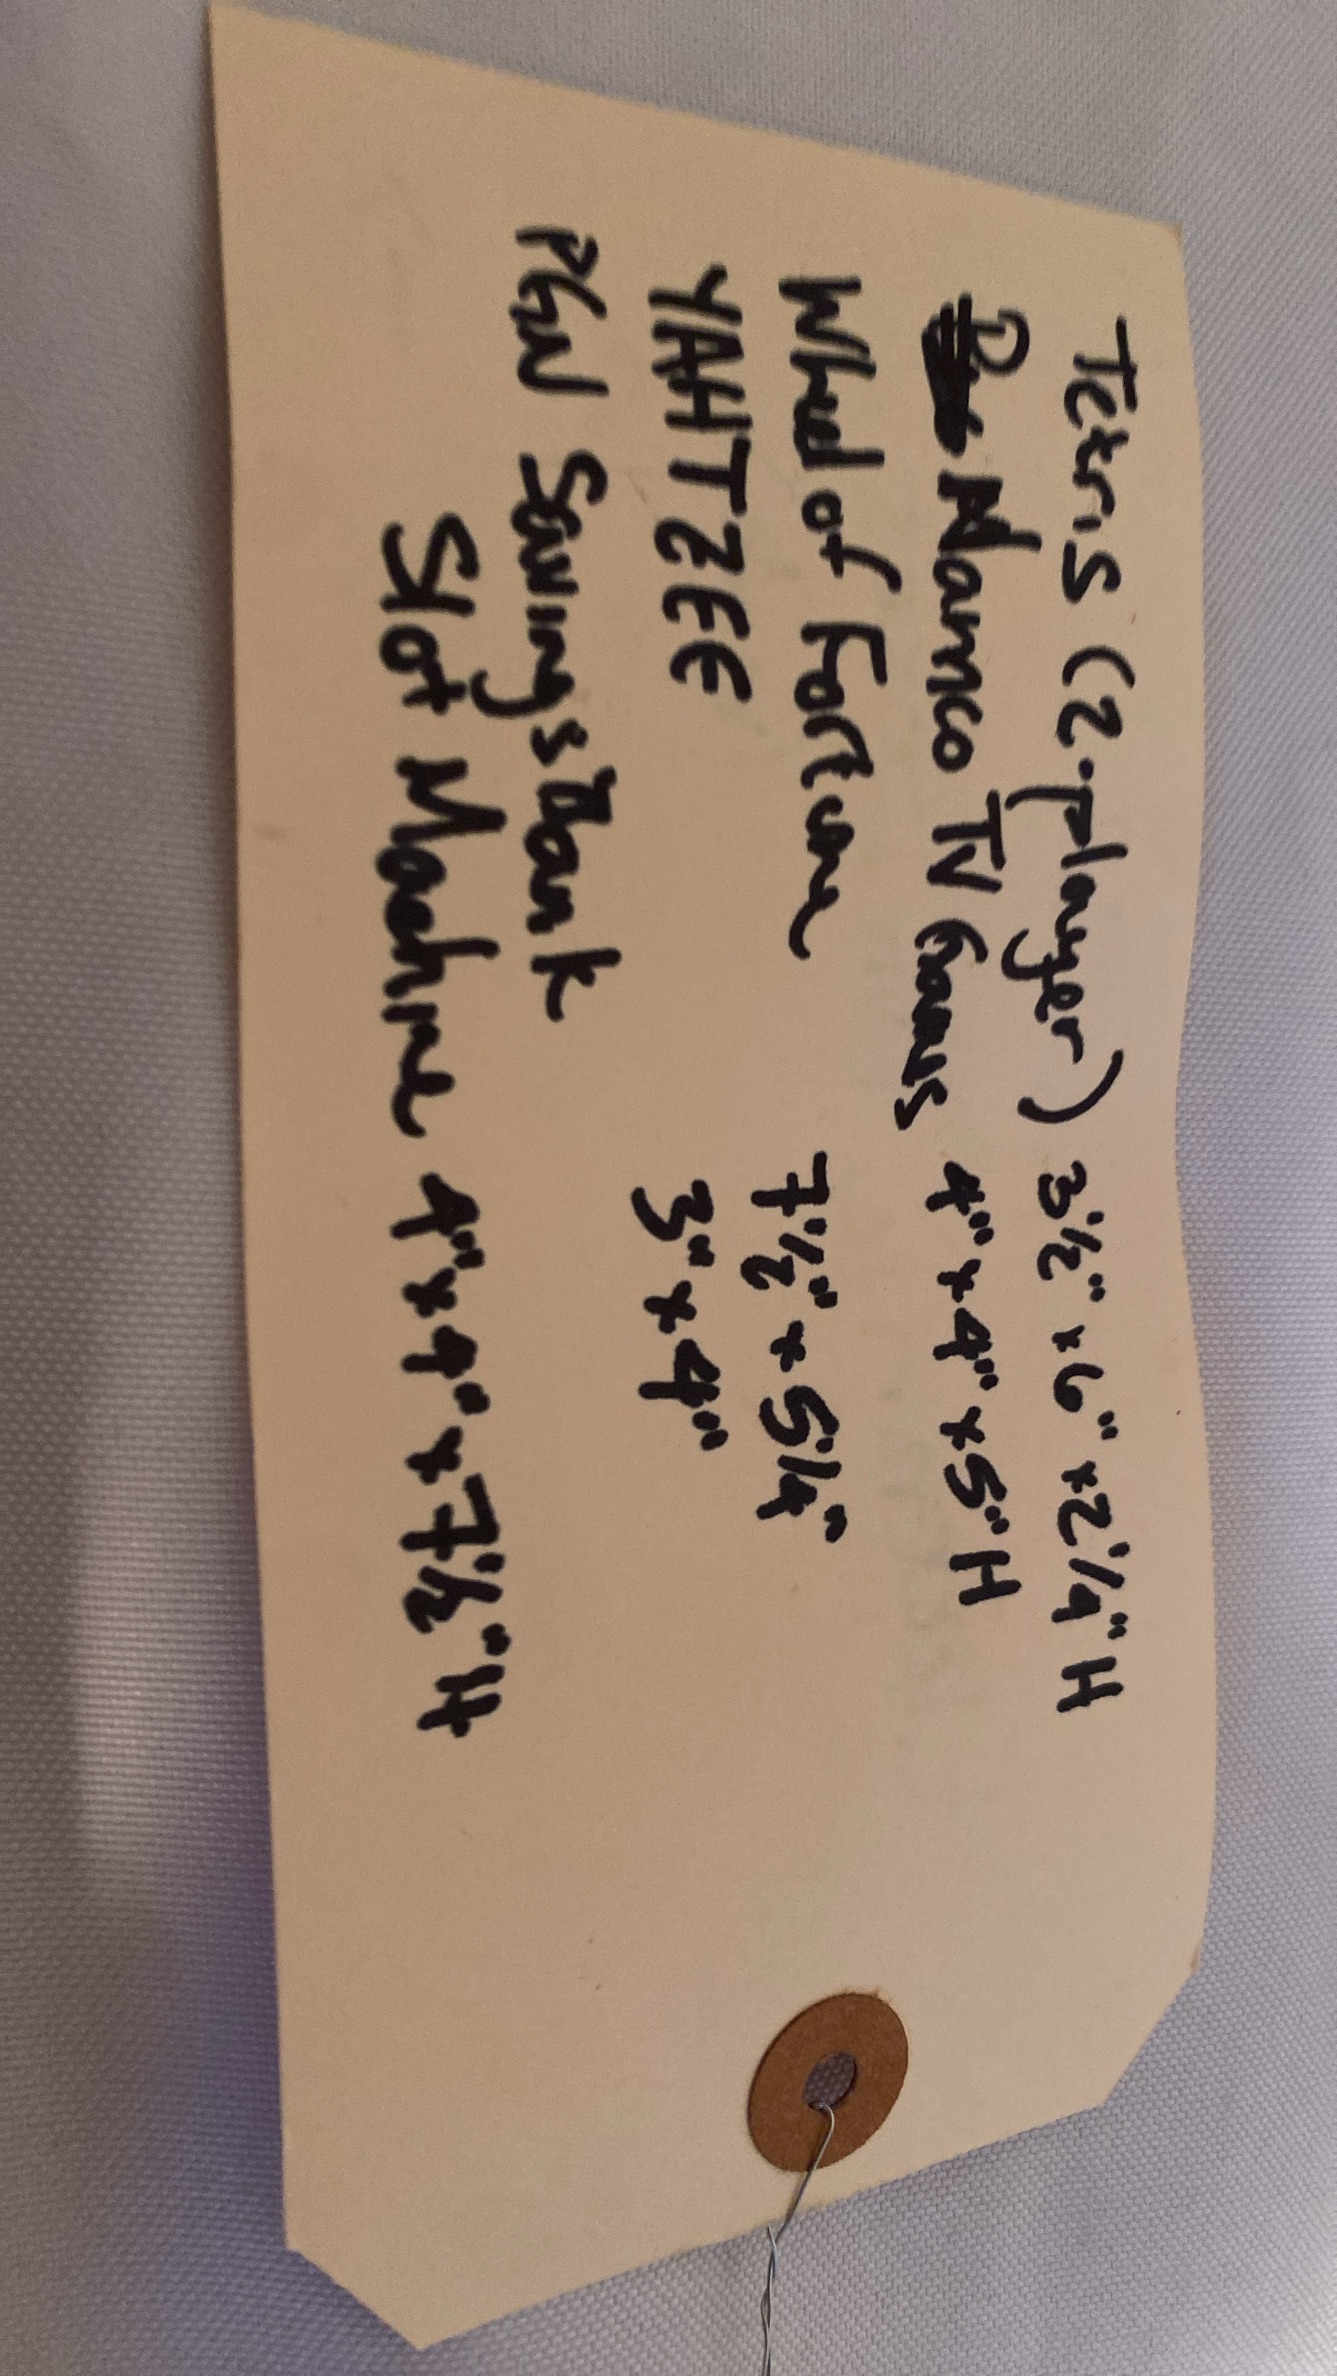 Tetris (2-player) 3 1/2" x 6" x 2 1/4" H
Namco TV Games 4" x 4" x 5" H
Wheel of Fortune 7 1/2" x 5 1/4"
YAHTZEE 3" x 4"
Savings Bank
Slot Machine 4" x 4" x 7 1/2" H